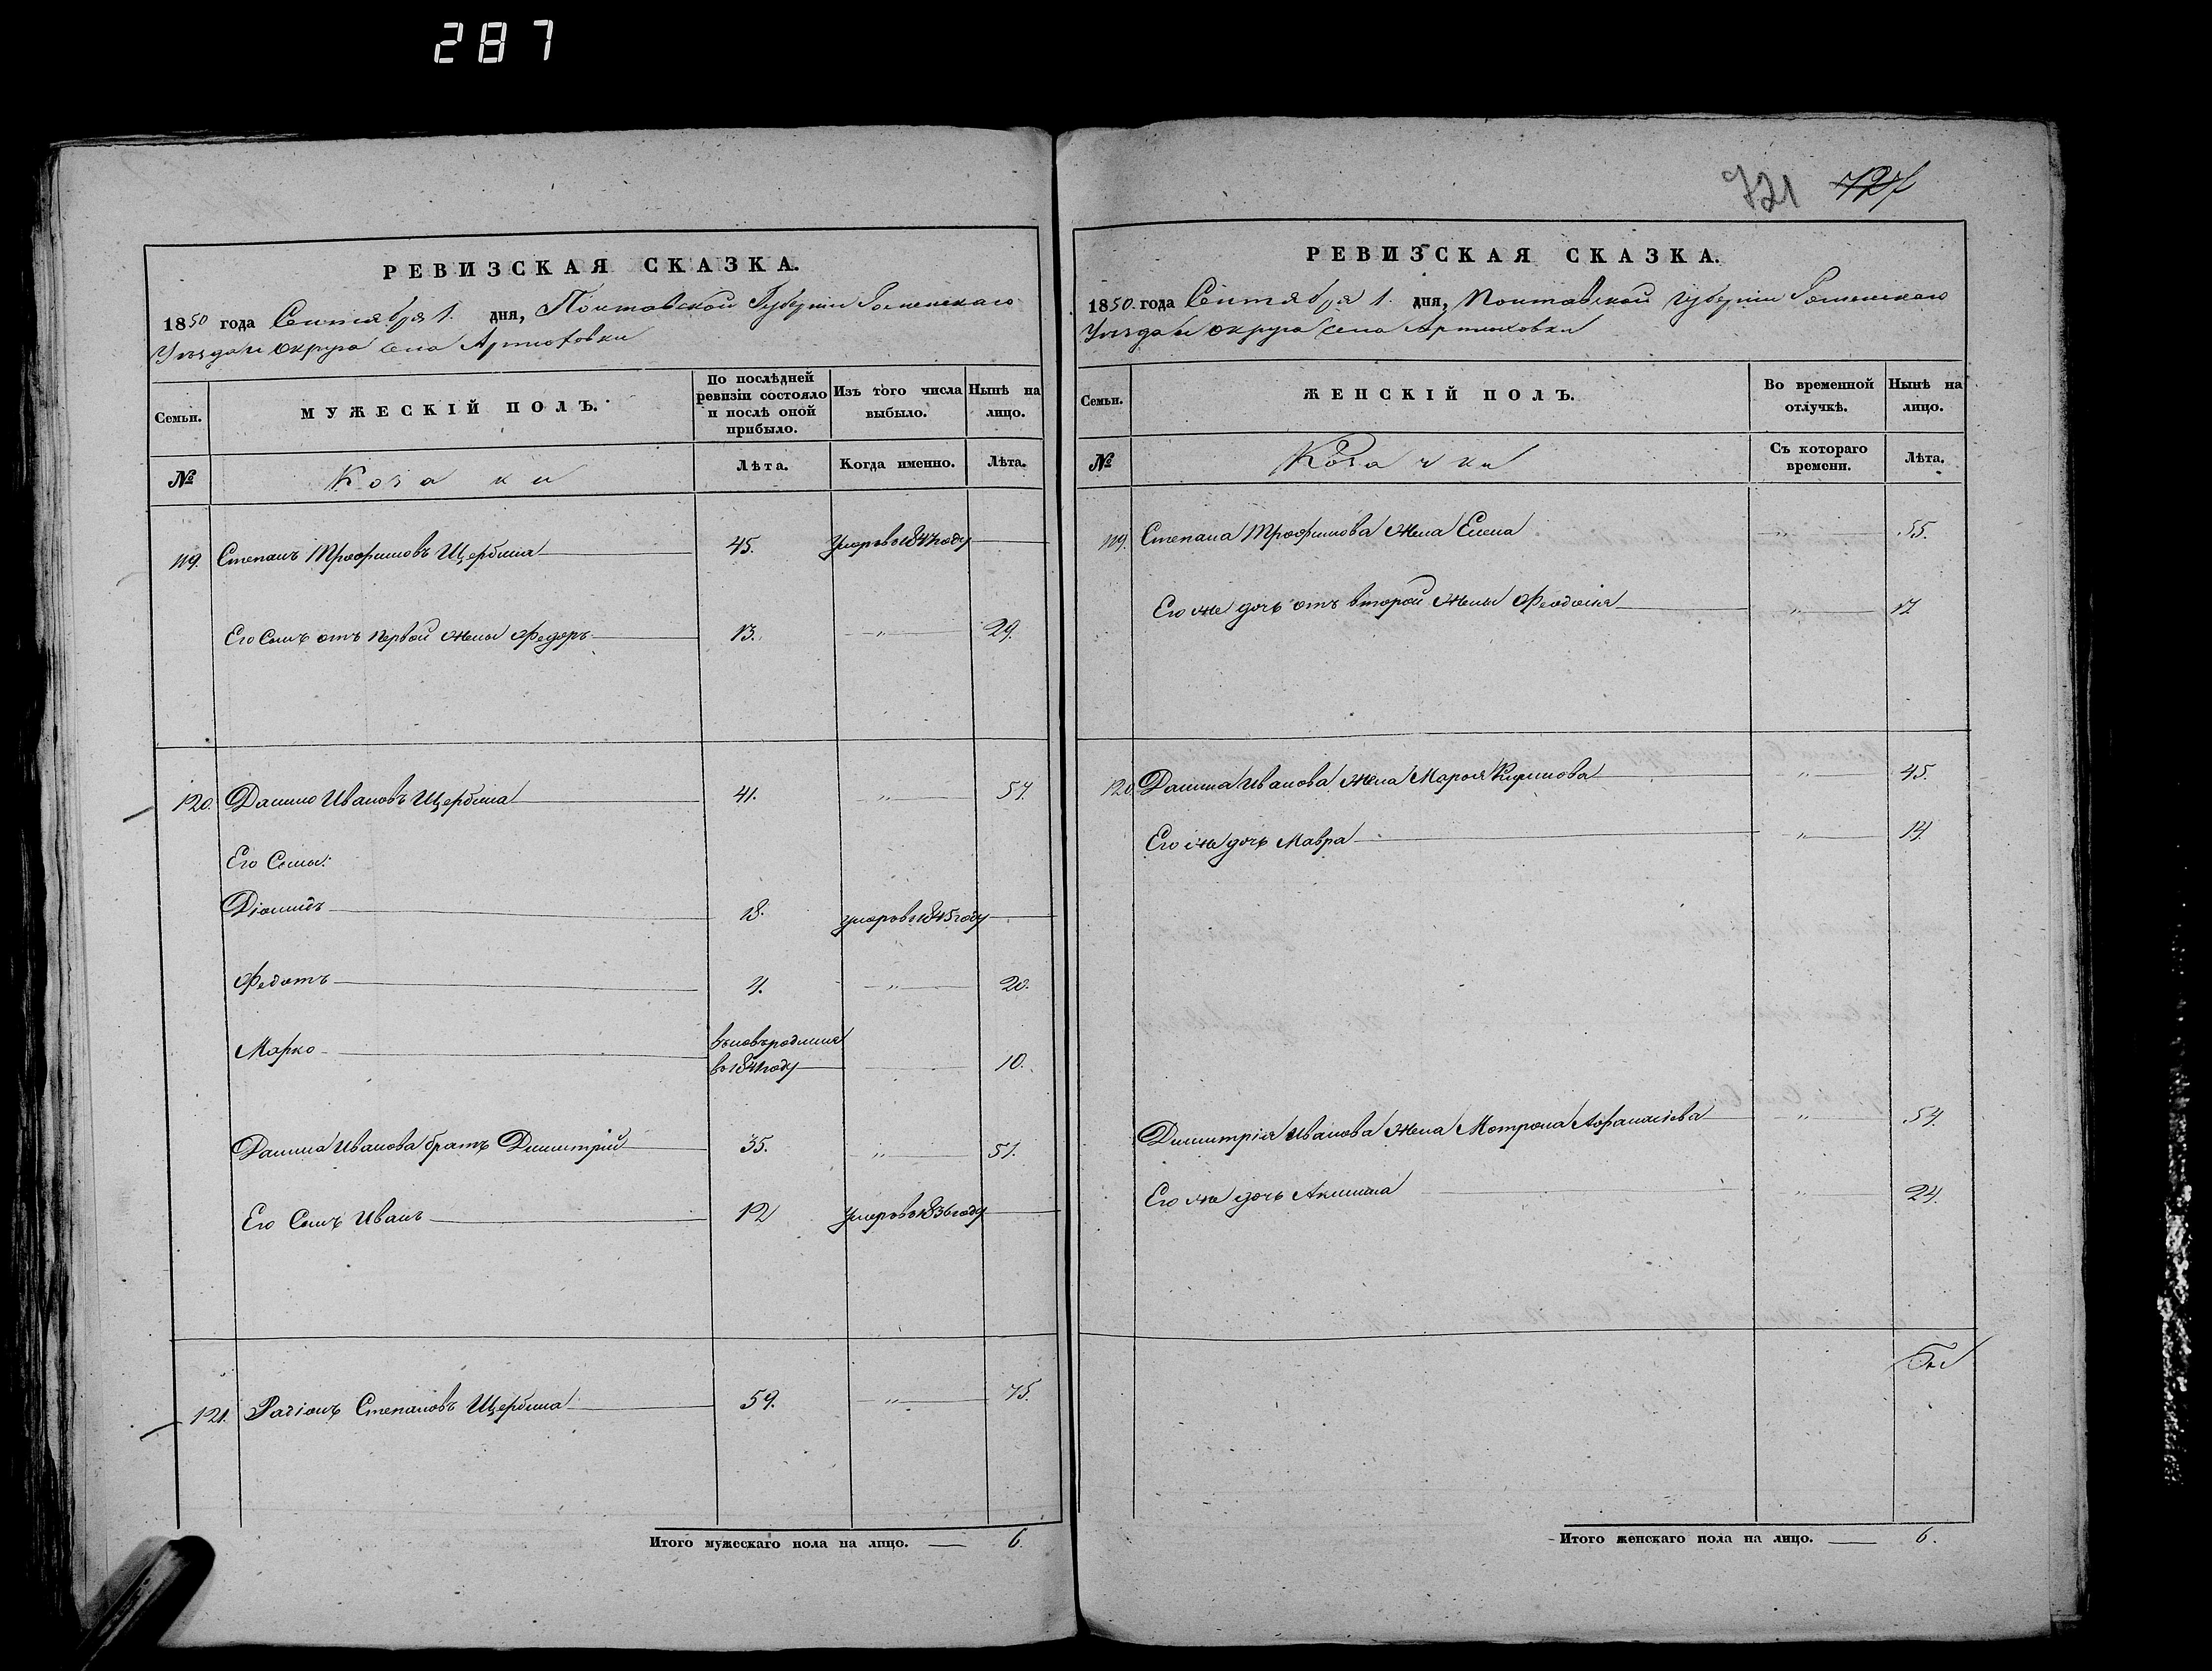 287
РЕВИЗСКАЯ СКАЗКА.
1850 года Сентября 1. дня, Полтавской Губернии Роменскаго
Уезда и округа села Артюховки
Семьи.
МУЖЕСКІЙ ПОЛЪ.
По послѣдней ревизіи состояло и послѣ оной прибыло.
Изъ того числа выбыло.
Нынѣ на лицо.
№
Козаки
Лѣта.
Когда именно.
Лѣта.
119. Степанъ Трофимовъ Щербина 45. умеръ въ 1847 году
Его Сынъ отъ первой жены Федоръ 13. " 29.
120. Данило Ивановъ Щербина 41. " 57.
Его Сыны:
Діомидъ 18. умеръ въ 1845 году
Федотъ 4. " 20.
Марко вьновьродился
въ 1841 году 10.
Данила Иванова братъ Димитрій 35. " 51.
Его Сынъ Иванъ 12 умеръ въ 1836 году
121. Радіонъ Степановъ Щербина 59. " 75.
Итого мужескаго пола на лицо. 6.
721 727
РЕВИЗСКАЯ СКАЗКА.
1850. года Сентября 1. дня, Полтавской губернии Роменскаго
Уезда и округа села Артюховки
Семьи.
ЖЕНСКІЙ ПОЛЪ.
Во временной отлучкѣ.
Нынѣ на лицо.
№
Козачки
Съ котораго времени.
Лѣта.
119. Степана Трофимова жена Елена " 55.
Его же дочь отъ второй жены Феодосія " 17
120. Данила Иванова жена Марья Климова " 45.
Его же дочь Мавра " 14.
Димитрія Иванова жена Мотрона Афанасіева " 54.
Его же дочь Акилина " 24.
Итого женскаго пола на лицо. 6.